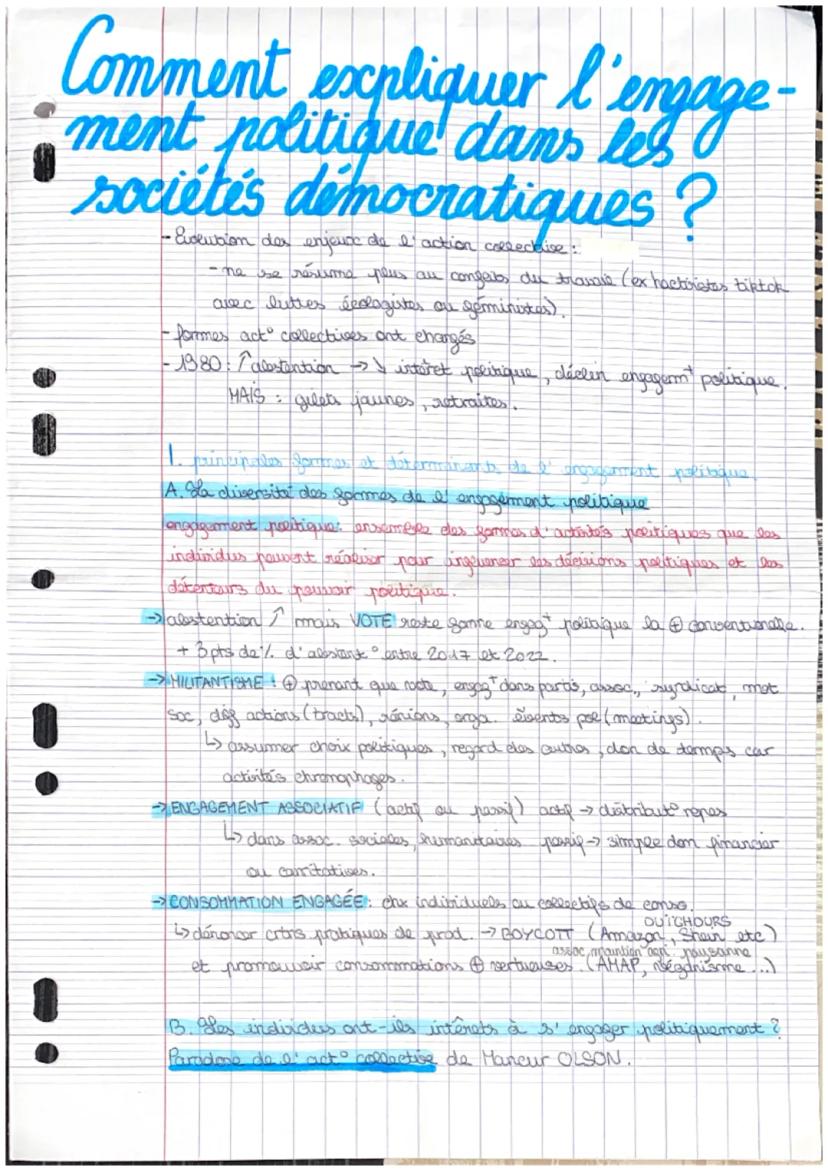 Comment expliquer l'engage-
ment politique dans les
sociétés démocratiques ?
- Evolution des enjeux de l'action collective :
- ne se résume plus au conflits du travail (ex hactivistes tiktok
avec luttes écologistes ou féministes).
- formes act° collectives ont changés
- 1980 : ↑ abstention → ↓ intérêt politique, déclin engagemt politique.
MAIS : gilets jaunes, retraites.
I. principales formes et déterminants de l'engagement politique.
A. La diversité des formes de l'engagement politique
engagement politique: ensemble des formes d'activités politiques que les
individus peuvent réaliser pour influencer les décisions politiques et les
détenteurs du pouvoir politique.
→ abstention ↑ mais VOTE reste forme engagt politique la ⊕ conventionnelle.
+ 3 pts de % d'abstent° entre 2017 et 2022.
→ MILITANTISME : ⊕ prenant que vote, engagt dans partis, assoc, syndicat, mvt
soc, dff actions (tracts), réunions, orga. évents pol (meetings).
↳ assumer choix politiques, regard des autres, don de temps car
activités chronophages.
→ ENGAGEMENT ASSOCIATIF (actif ou passif) actif → distribut° repas
↳ dans assoc. sociales, humanitaires passif → simple don financier
ou caritatives.
→ CONSOMMATION ENGAGÉE : chx individuels ou collectifs de conso.
OUÏGHOURS
↳ dénoncer crtrs pratiques de prod. → BOYCOTT (Amazon, Shein etc)
assoc, maintien agri. paysanne
et promouvoir consommations ⊕ vertueuses. (AMAP, véganisme...)
B. Les individus ont-ils intérêts à s'engager politiquement ?
Paradoxe de l'act° collective de Mancur OLSON.